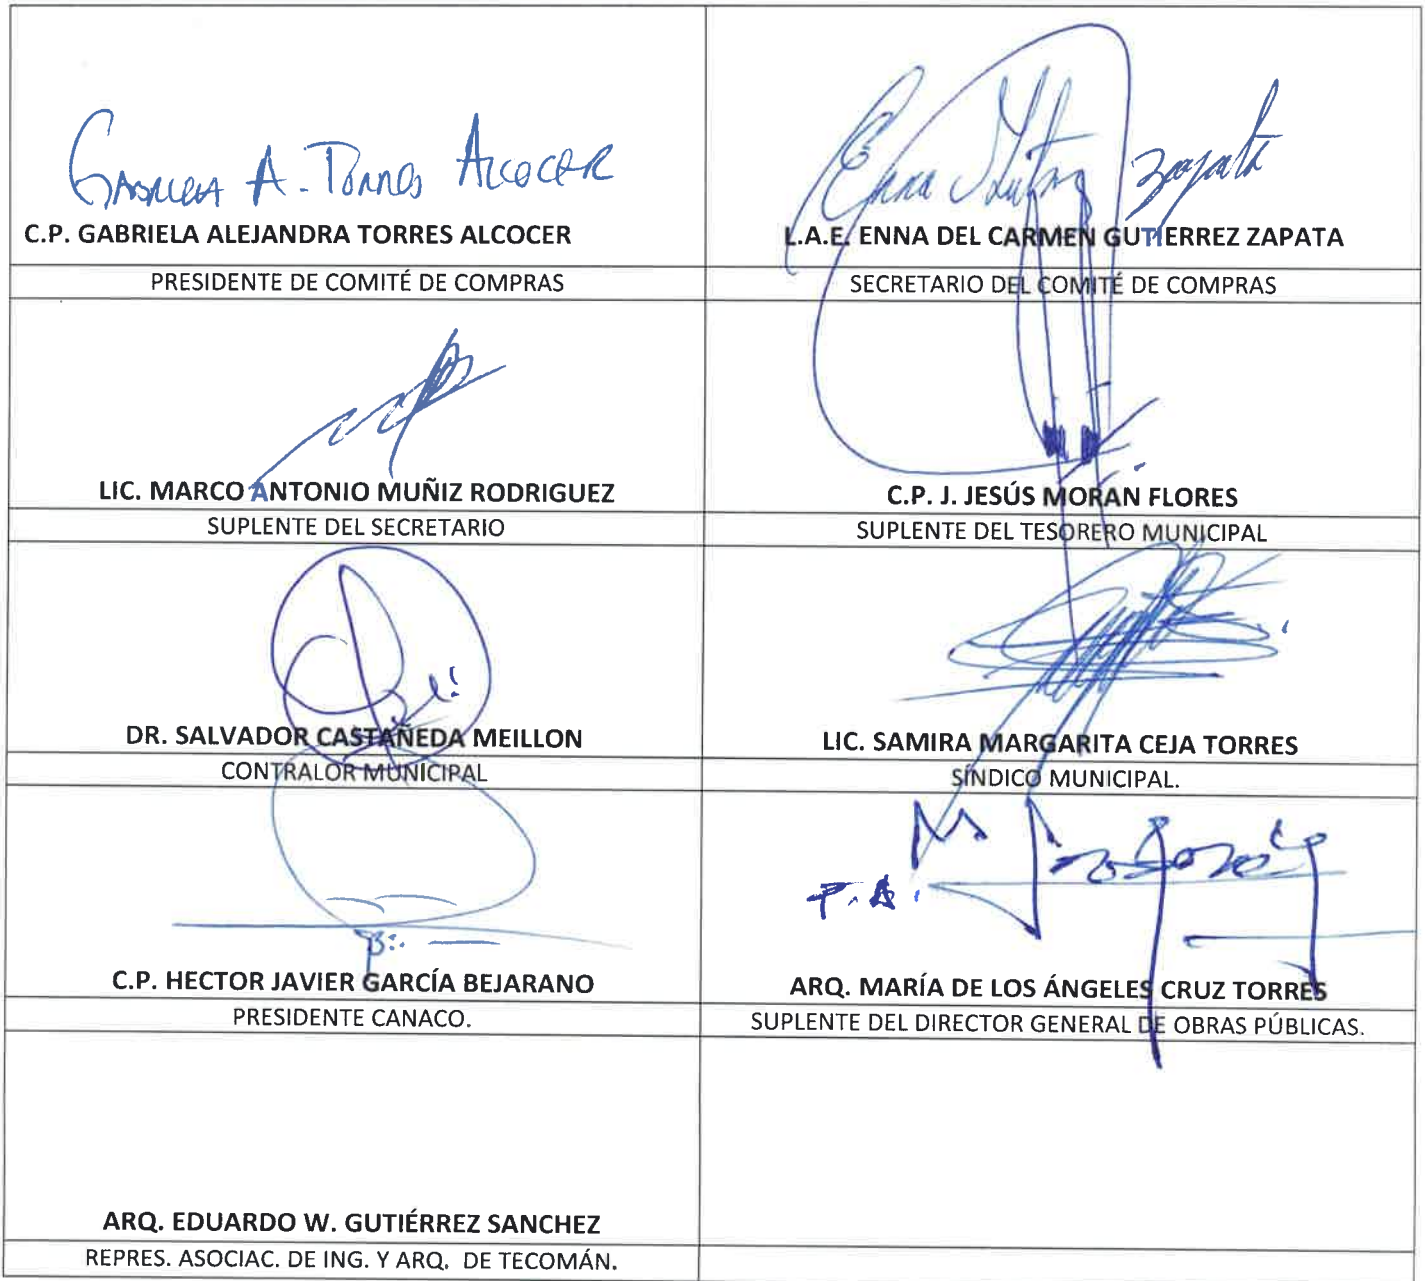 GABRIELA A. TORRES ALCOCER
Enna Gutierrez Zapata
C.P. GABRIELA ALEJANDRA TORRES ALCOCER
L.A.E. ENNA DEL CARMEN GUTIERREZ ZAPATA
PRESIDENTE DE COMITÉ DE COMPRAS
SECRETARIO DEL COMITÉ DE COMPRAS
LIC. MARCO ANTONIO MUÑIZ RODRIGUEZ
C.P. J. JESÚS MORAN FLORES
SUPLENTE DEL SECRETARIO
SUPLENTE DEL TESORERO MUNICIPAL
DR. SALVADOR CASTAÑEDA MEILLON
LIC. SAMIRA MARGARITA CEJA TORRES
CONTRALOR MUNICIPAL
SÍNDICO MUNICIPAL.
P.A.
C.P. HECTOR JAVIER GARCÍA BEJARANO
ARQ. MARÍA DE LOS ÁNGELES CRUZ TORRES
PRESIDENTE CANACO.
SUPLENTE DEL DIRECTOR GENERAL DE OBRAS PÚBLICAS.
ARQ. EDUARDO W. GUTIÉRREZ SANCHEZ
REPRES. ASOCIAC. DE ING. Y ARQ. DE TECOMÁN.